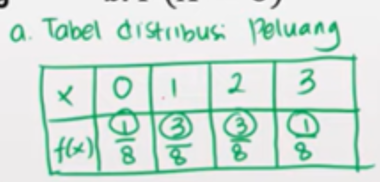 a. Tabel distribusi Peluang
x 0 1 2 3
f(x) 1/8 3/8 3/8 1/8